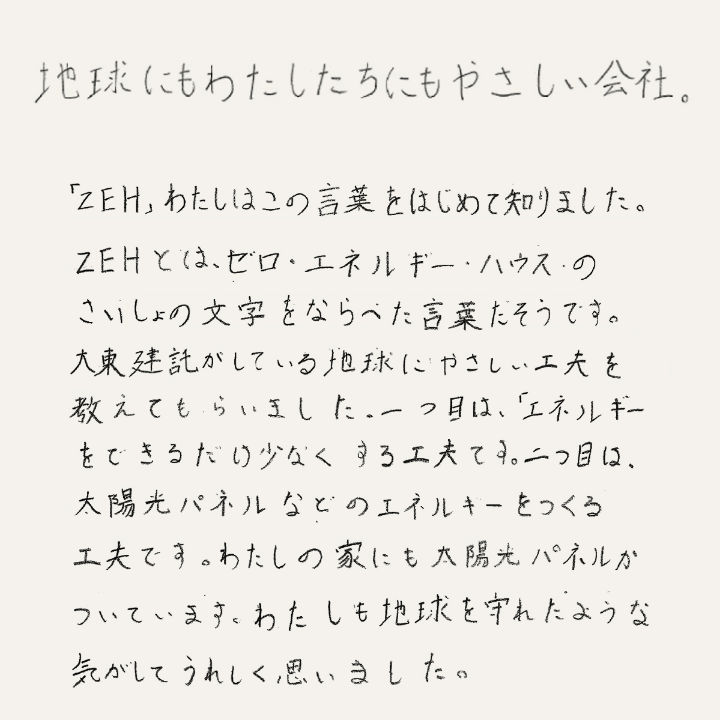 地球にもわたしたちにもやさしい会社。
「ZEH」わたしはこの言葉をはじめて知りました。
ZEHとは、ゼロ・エネルギー・ハウスの
さいしょの文字をならべた言葉だそうです。
大東建託がしている地球にやさしい工夫を
教えてもらいました。一つ目は、「エネルギー
をできるだけ少なくする工夫です。二つ目は、
太陽光パネルなどのエネルキーをつくる
工夫です。わたしの家にも太陽光パネルが
ついています。わたしも地球を守れたような
気がしてうれしく思いました。